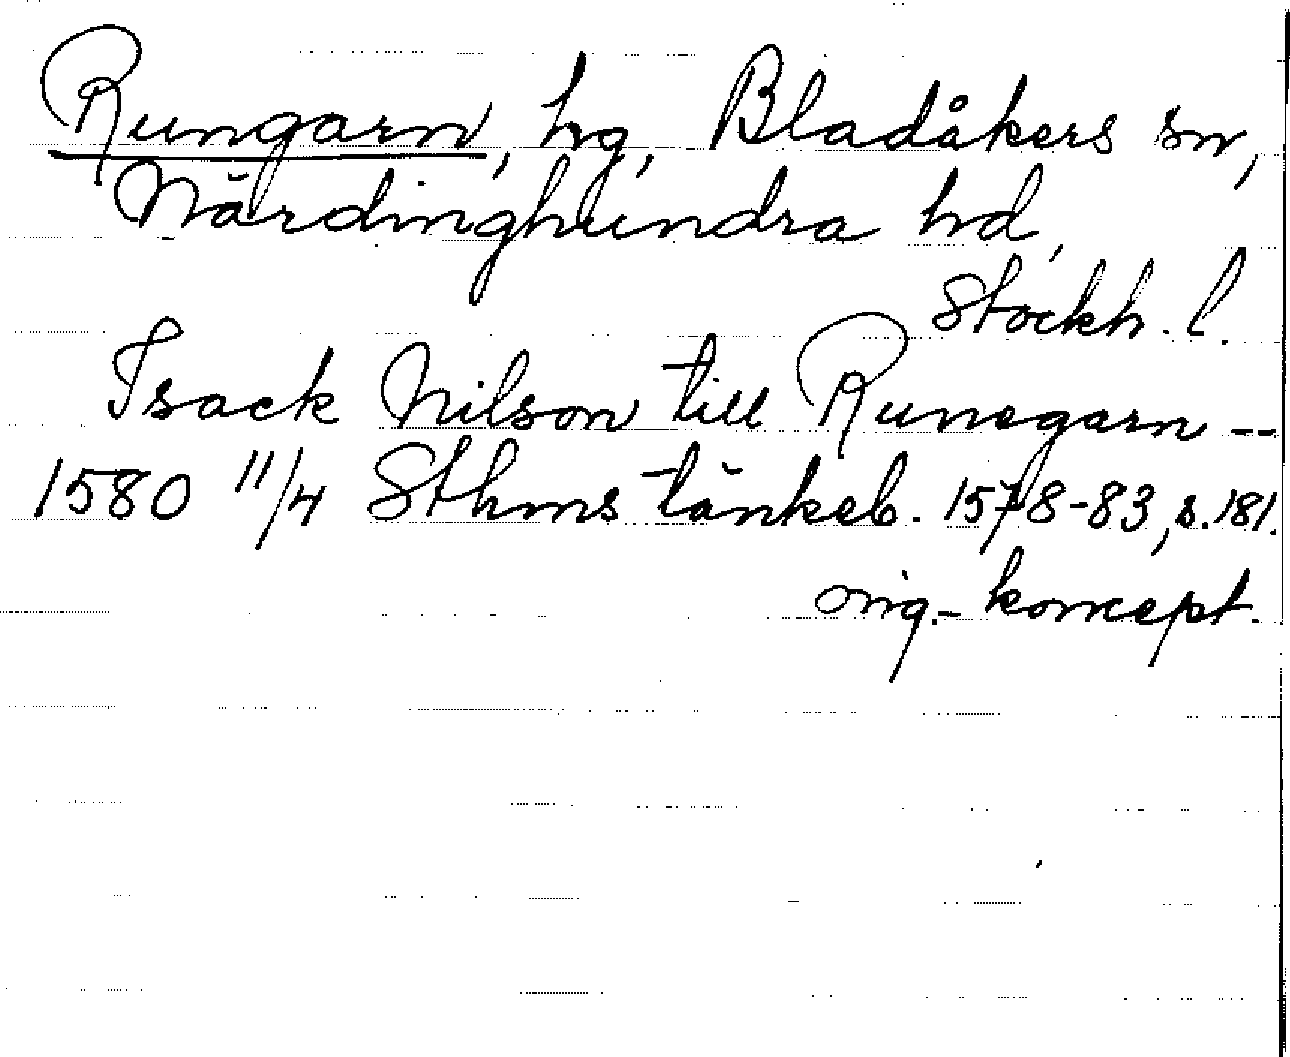 Rungarn, hg, Bladåkers sn,
Närdinghundra hd,
Stockh. l.
Isack Nilson till Runegarn --
1580 11/4 Sthms tänkeb. 1578-83, s. 181.
orig.- koncept.